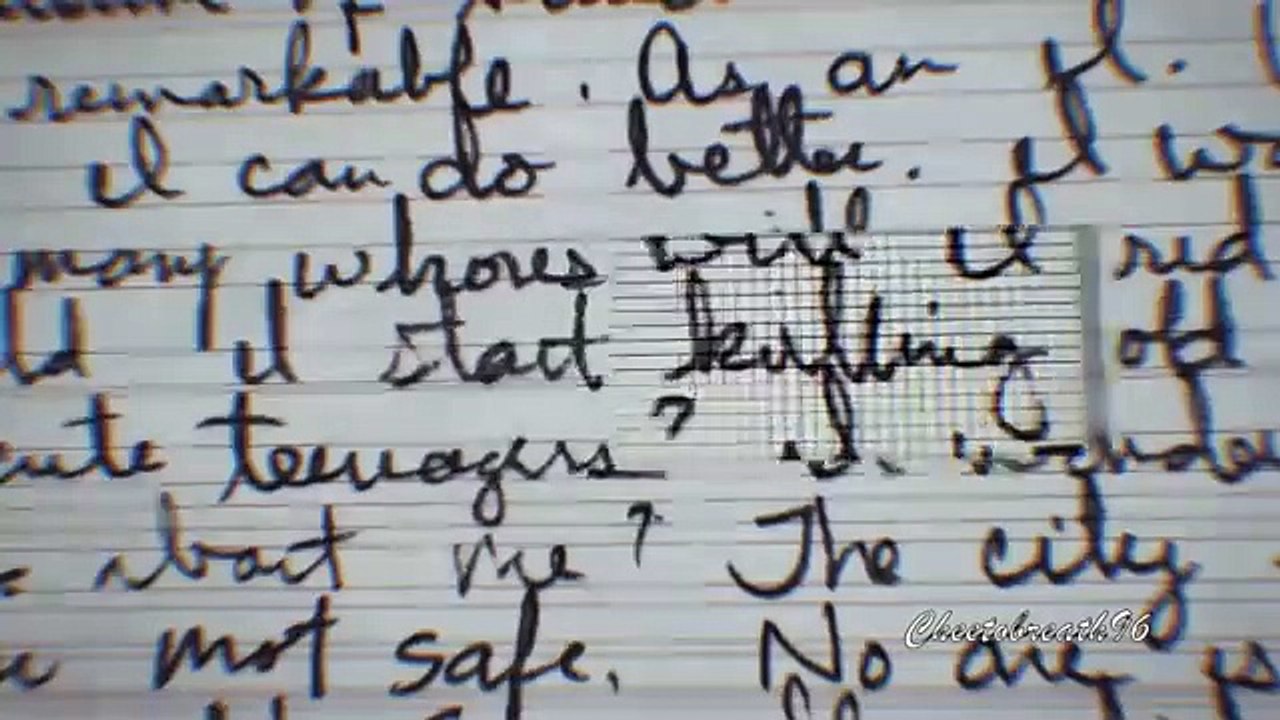 remarkable. As an
I can do better. I
many whores will I rid
I start killing old
cute teenagers? I wonder
about me? The city
not safe. No one is
Cheetobreath96